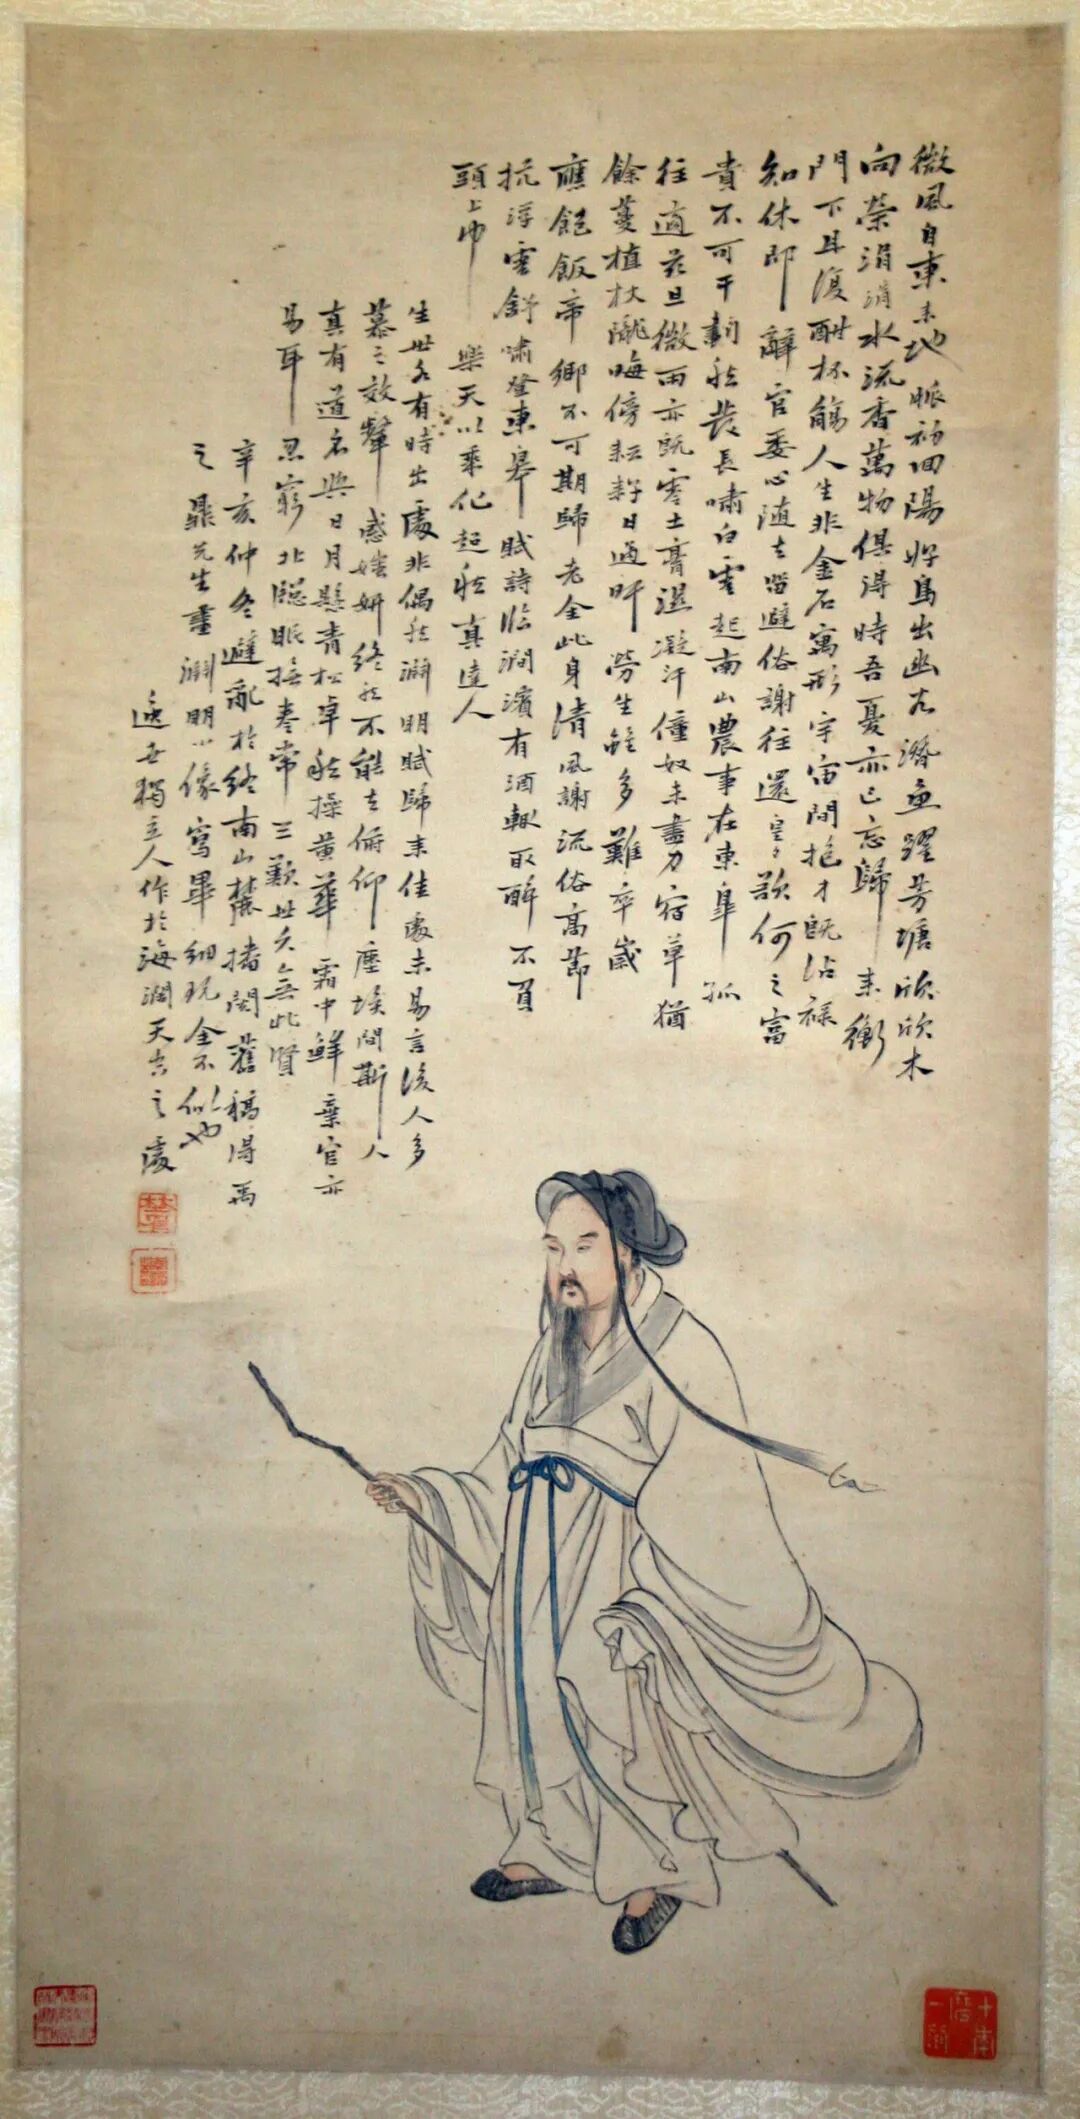 微風自東來地脈初回陽好鳥出幽谷潛魚躍芳塘欣欣木
向榮涓涓水流香萬物俱得時吾憂亦已忘歸來衡
門下且復酣杯觴人生非金石寓形宇宙間抱才既沾祿
知休即辭官委心隨去留避俗謝往還皇皇欲何之富
貴不可干翻然發長嘯白雲起南山農事在東皋孤
往適茲旦微雨亦既零土膏溼凝汗僮奴未盡力宿草猶
餘蔓植杖隴畮傍耘耔日過旰勞生雖多難卒歲
應飽飯帝鄉不可期歸老全此身清風謝流俗高節
抗浮雲舒嘯登東皋賦詩臨澗濱有酒輒取醉不負
頭上巾樂天以乘化超然真達人
生世各有時出處非偶然淵明賦歸來佳處未易言後人多
慕之效顰感媸妍終然不能去俯仰塵埃間斯人
真有道名與日月懸青松卓然操黃華霜中鮮棄官亦
易耳忍窮北牕眠撫卷常三歎世久無此賢
辛亥仲冬避亂於終南山麓搨閱舊稿得禹
之鼎先生畫淵明小像寫畢細玩全不似也
遯世獨立人作於海濶天空之處